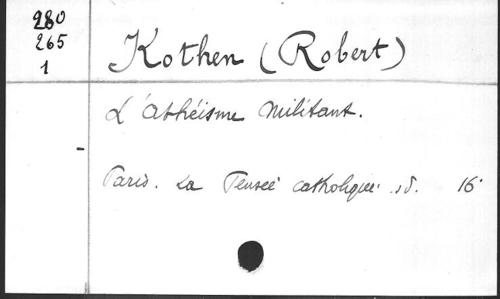 280
265
1
Kothen (Robert)
L'athéisme militant.
Paris. La Pensée catholique. sd. 16°